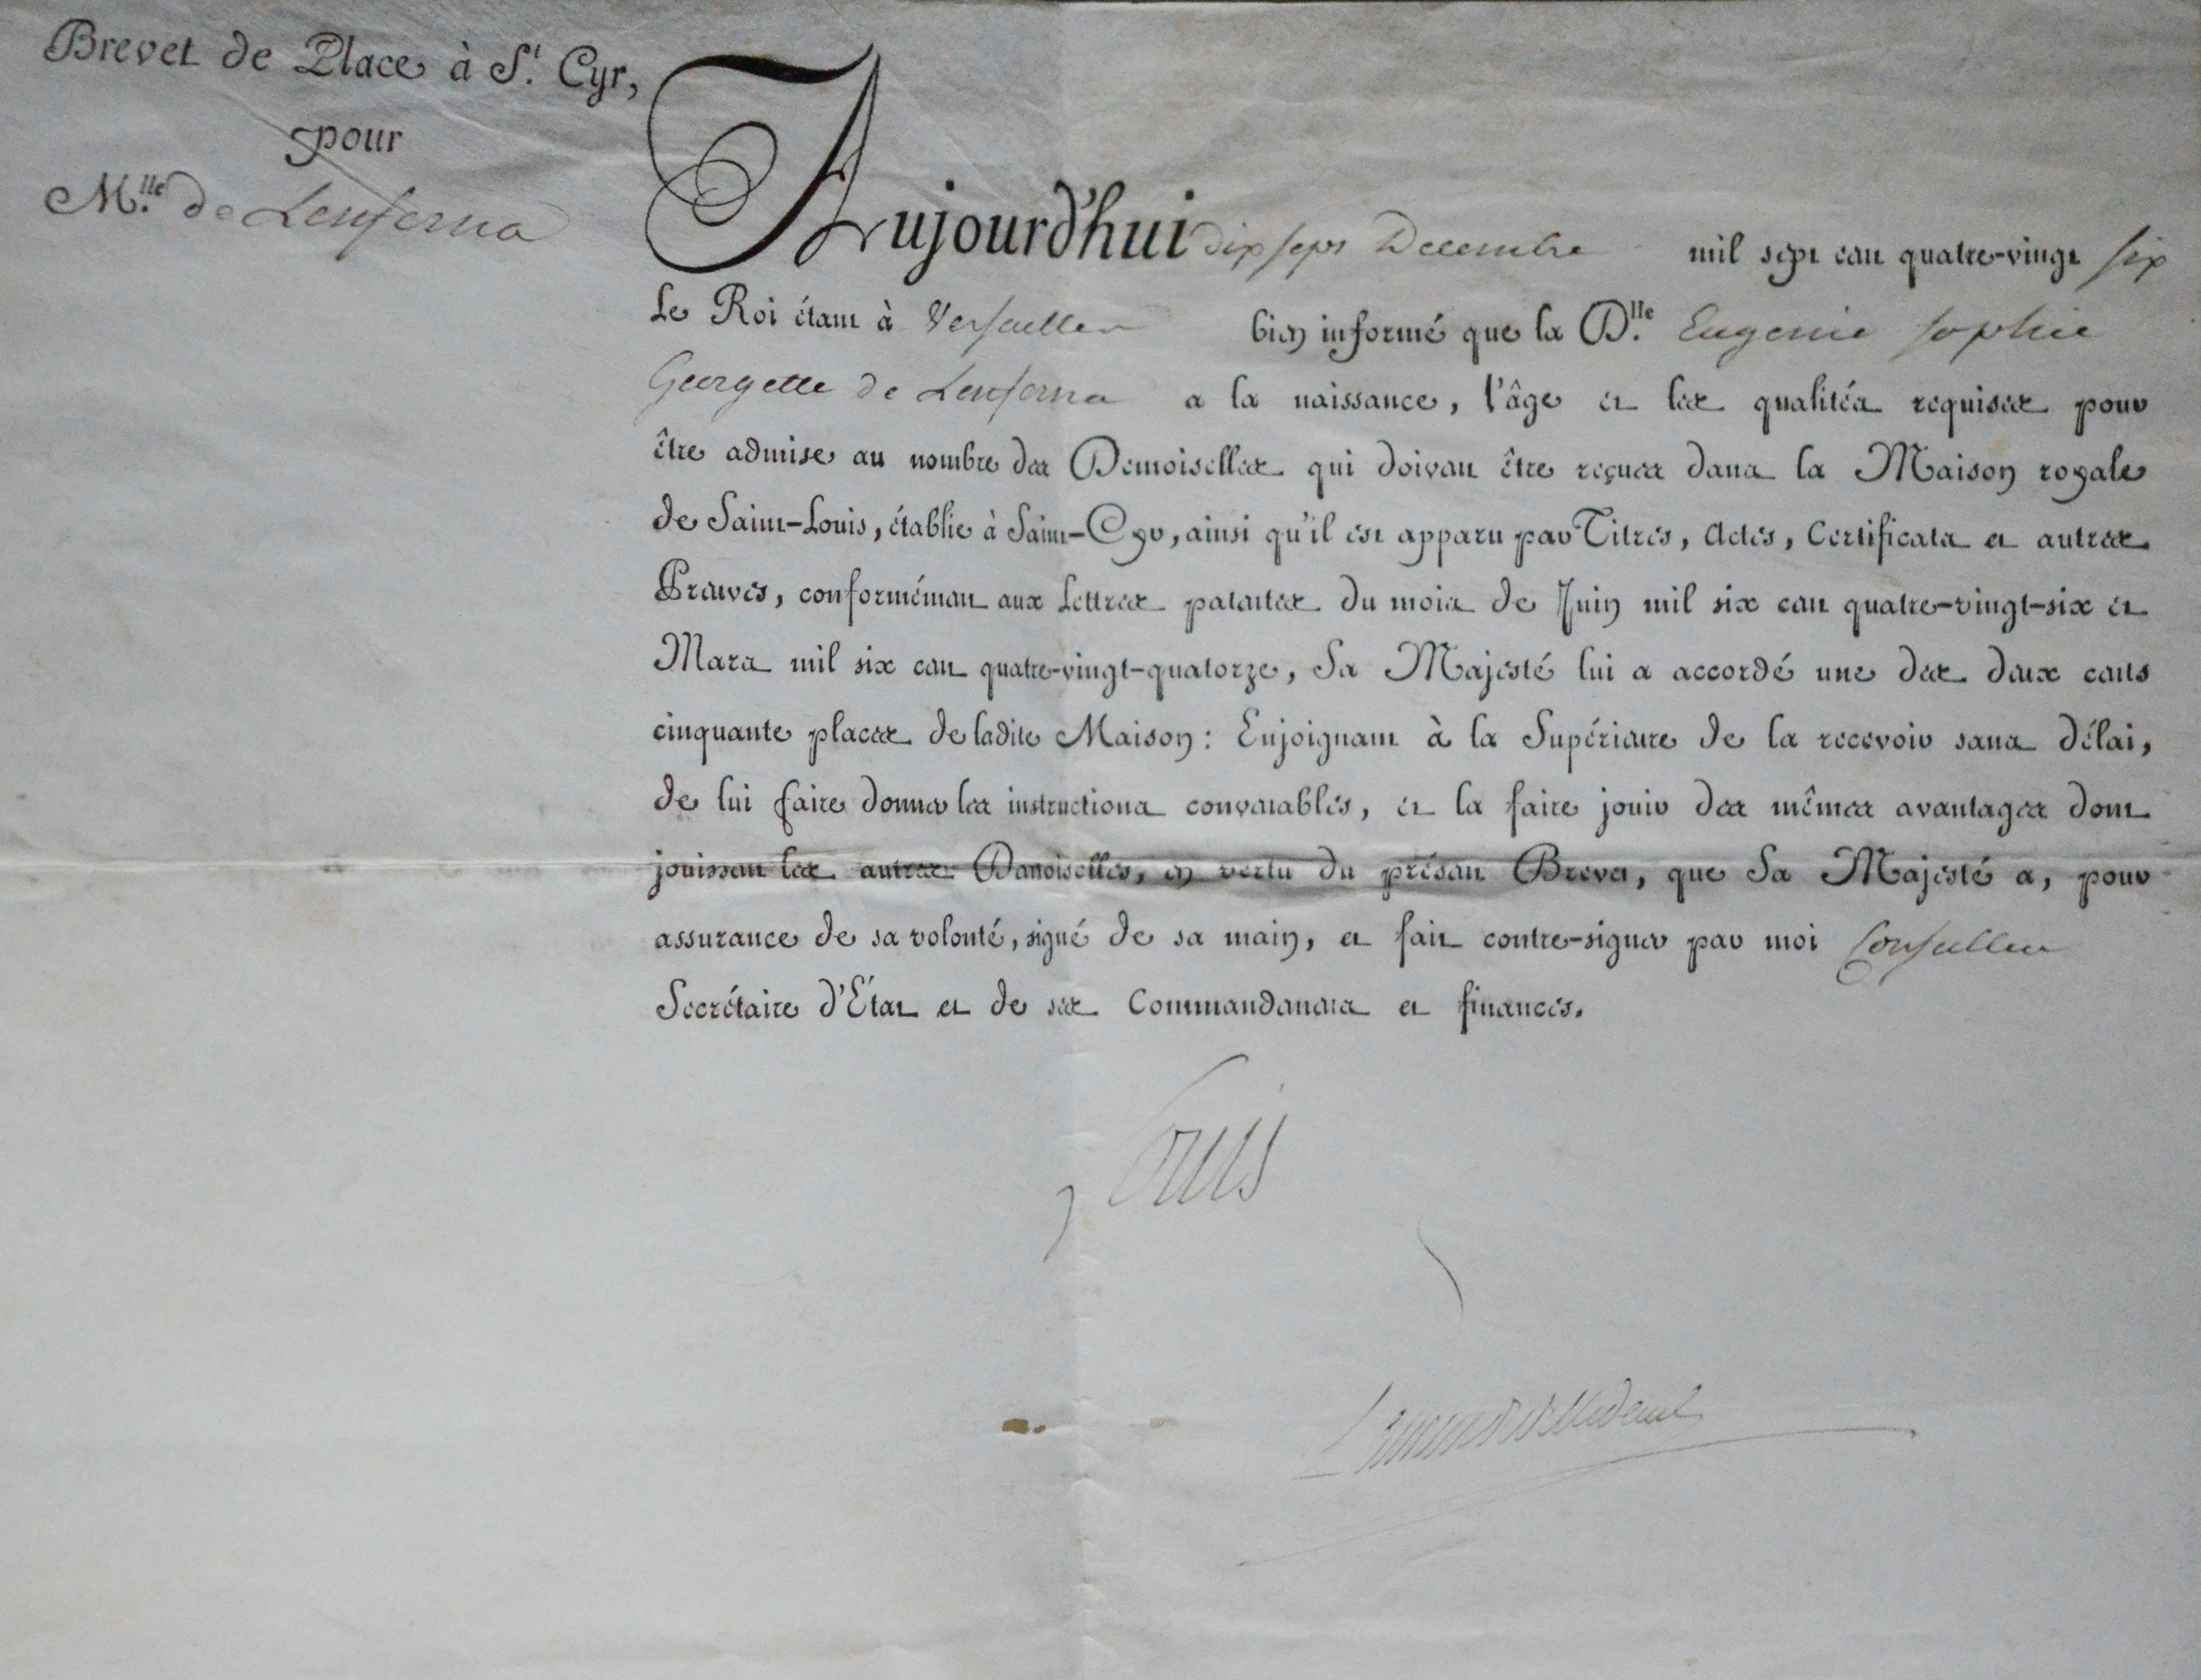 Brevet de Place à S.t Cyr,
pour
M.lle de Lenferna
Aujourd'hui dix sept Decembre mil sept cent quatre-vingt six
Le Roi étant à Versailles bien informé que la D.lle Eugenie Sophie
Georgette de Lenferna a la naissance, l'âge et les qualités requises pour
être admise au nombre des Demoiselles qui doivent être reçues dans la Maison royale
de Saint-Louis, établie à Saint-Cyr, ainsi qu'il est apparu par Titres, Actes, Certificats et autres
Preuves, conformément aux Lettres patentes du mois de Juin mil six cent quatre-vingt-six et
Mars mil six cent quatre-vingt-quatorze, Sa Majesté lui a accordé une des deux cents
cinquante places de ladite Maison : Enjoignant à la Supérieure de la recevoir sans délai,
de lui faire donner les instructions convenables, et la faire jouir des mêmes avantages dont
jouissent les autres Demoiselles, en vertu du présent Brevet, que Sa Majesté a, pour
assurance de sa volonté, signé de sa main, et fait contre-signer par moi Conseiller
Secrétaire d'État et de ses Commandemens et finances.
Louis
Laurent de Villedeuil